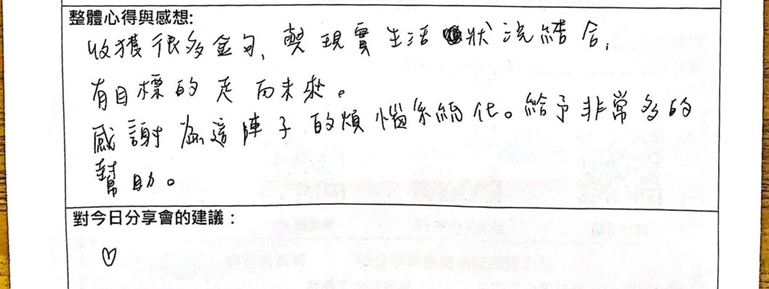 整體心得與感想:
收獲很多金句,與現實生活狀況結合,
有目標的走向未來。
感謝為這陣子的煩惱系統化。給予非常多的
幫助。
對今日分享會的建議：
♡